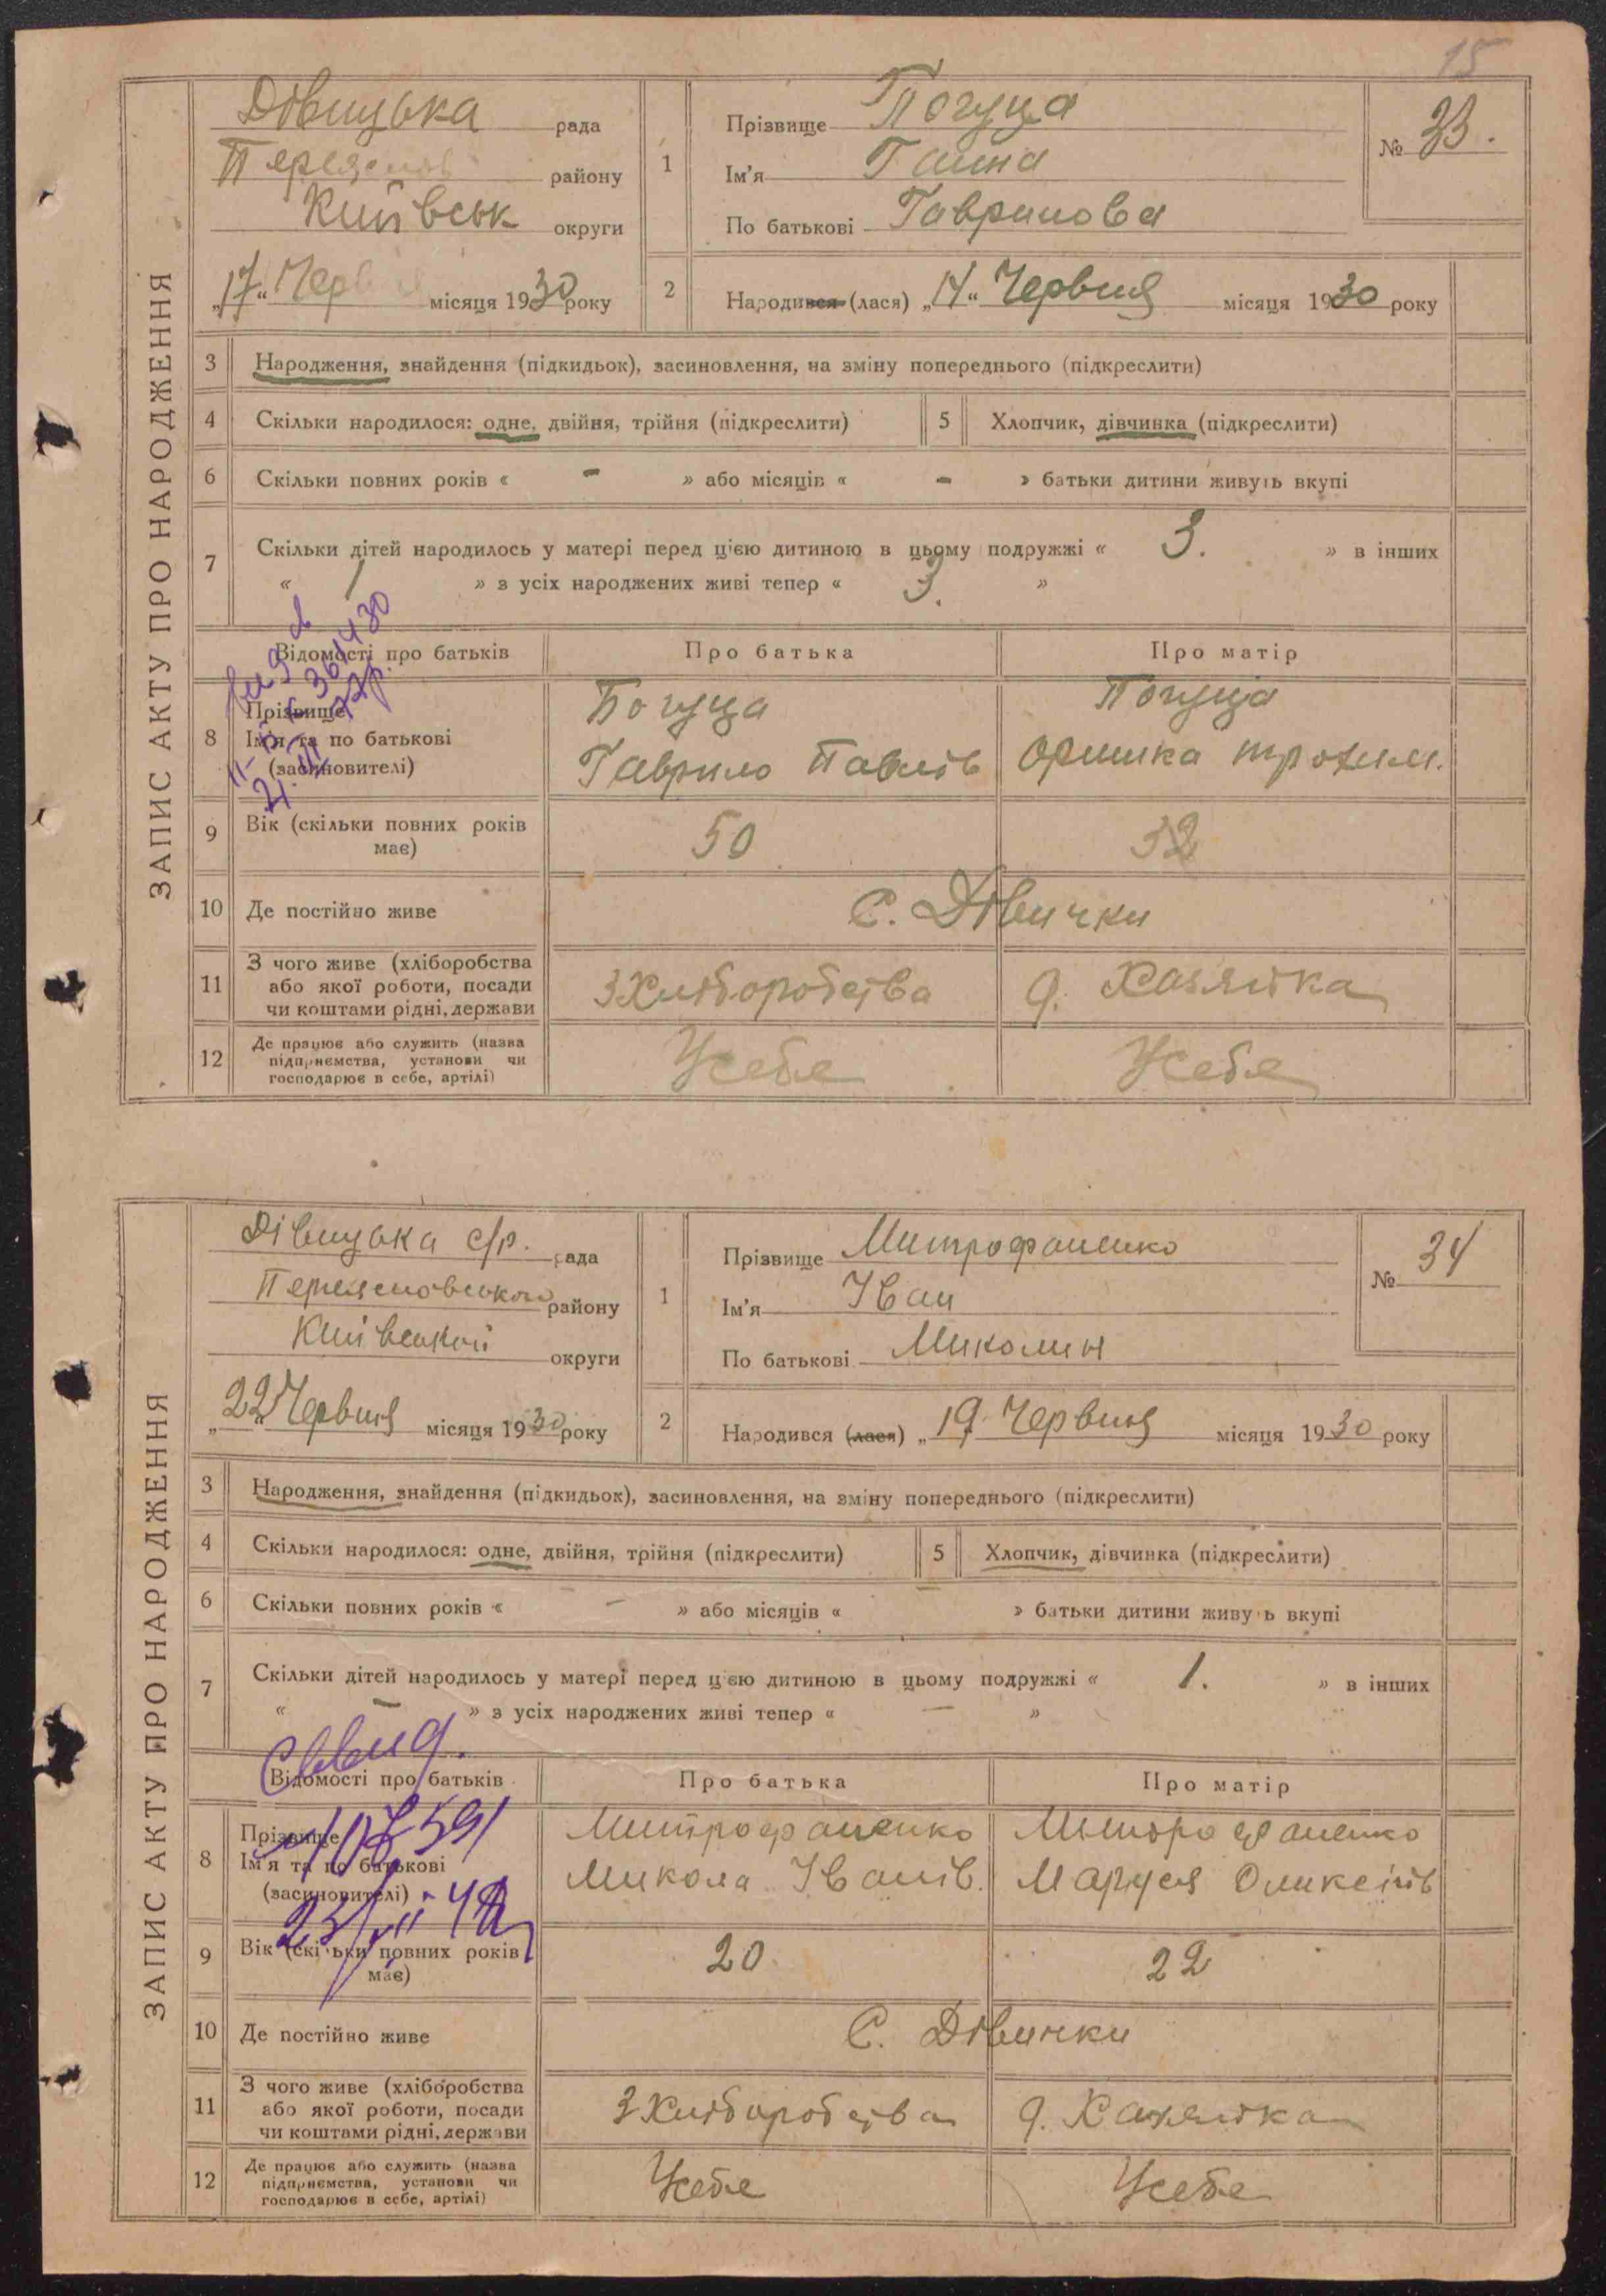 15
ЗАПИС АКТУ ПРО НАРОДЖЕННЯ
Дівицька рада
Переяслов району
Київськ округи
„17“ Червня місяця 1930 року
1 Прізвище Погуца
Ім'я Ганна
По батькові Гаврилова
№ 33.
2 Народився (лася) „14“ Червня місяця 1930 року
3 Народження, знайдення (підкидьок), засиновлення, на зміну попереднього (підкреслити)
4 Скільки народилося: одне, двійня, трійня (підкреслити) 5 Хлопчик, дівчинка (підкреслити)
6 Скільки повних років « - » або місяців « - » батьки дитини живуть вкупі
7 Скільки дітей народилось у матері перед цією дитиною в цьому подружжі « 3. » в інших
« 1 » з усіх народжених живі тепер « 3. »
Відомості про батьків Про батька Про матір
8 Прізвище Ім'я та по батькові (засиновителі)
Богуца Погуца
Гаврило Павлів Оришка трохим.
9 Вік (скільки повних років має) 50 32
10 Де постійно живе С. Дівички
11 З чого живе (хліборобства або якої роботи, посади чи коштами рідні, держави
З Хліборобства д. Хазяйка
12 Де працює або служить (назва підприємства, установи чи господарює в себе, артілі)
Усебе Усебе
ЗАПИС АКТУ ПРО НАРОДЖЕННЯ
Дівицька с/р. рада
Переясловського району
Київської округи
„22“ Червня місяця 1930 року
1 Прізвище Митрофаненко
Ім'я Іван
По батькові Миколин
№ 34
2 Народився (лася) „19“ Червня місяця 1930 року
3 Народження, знайдення (підкидьок), засиновлення, на зміну попереднього (підкреслити)
4 Скільки народилося: одне, двійня, трійня (підкреслити) 5 Хлопчик, дівчинка (підкреслити)
6 Скільки повних років « - » або місяців « » батьки дитини живуть вкупі
7 Скільки дітей народилось у матері перед цією дитиною в цьому подружжі « 1. » в інших
« - » з усіх народжених живі тепер « - »
Відомості про батьків Про батька Про матір
8 Прізвище Ім'я та по батькові (засиновителі)
Митрофаненко Митрофаненко
Микола Іванів. Маруся Оликсіїв
9 Вік (скільки повних років має) 20 22
10 Де постійно живе С. Дівички
11 З чого живе (хліборобства або якої роботи, посади чи коштами рідні, держави
З Хліборобства д. Хазяйка
12 Де працює або служить (назва підприємства, установи чи господарює в себе, артілі)
Усебе Усебе